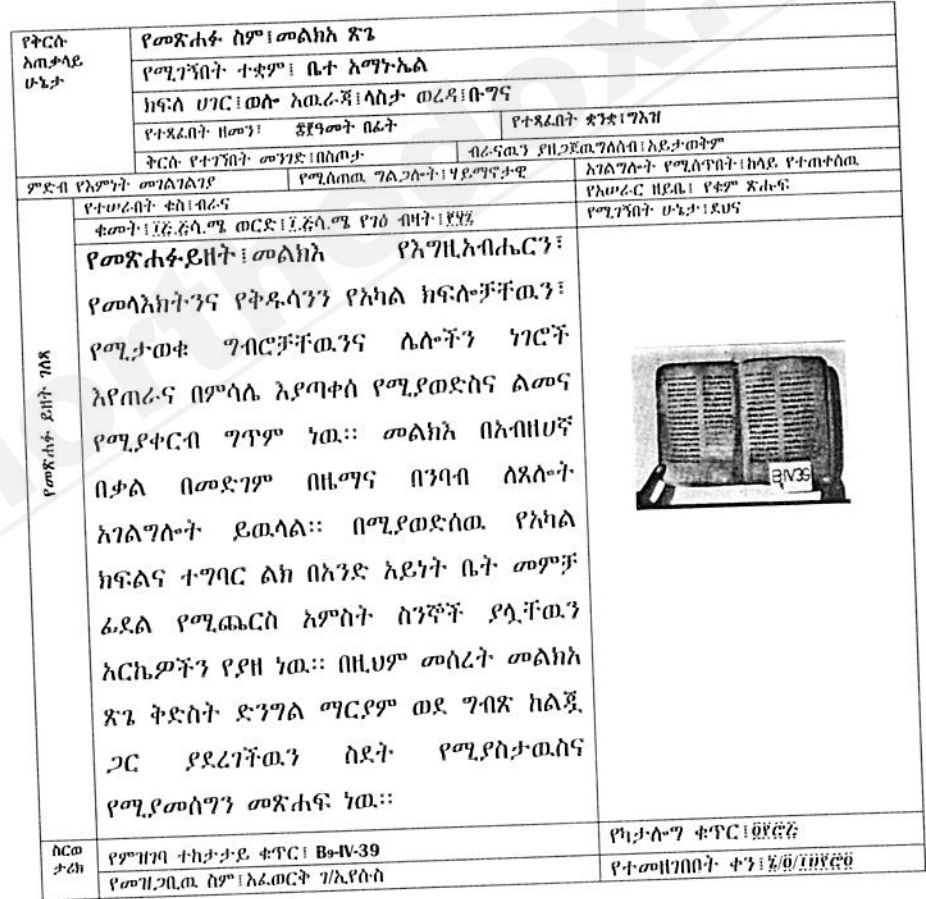 የቅርሱ አጠቃላይ ሁኔታ
የመጽሐፉ ስም፤መልክአ ጽጌ
የሚገኝበት ተቋም፤ ቤተ አማኑኤል
ክፍለ ሀገር፤ወሎ አዉራጃ፤ላስታ ወረዳ፤ቡግና
የተጻፈበት ዘመን፤ ዓመት በፊት
የተጻፈበት ቋንቋ፤ግእዝ
ቅርሱ የተገኘበት መንገድ፤በስጦታ
ብራናዉን ያዘጋጀዉግለሰብ፤አይታወቅም
ምድብ የእምነት መገልገልገያ
የሚሰጠዉ ግልጋሎት፤ሃይማኖታዊ
አገልግሎት የሚሰጥበት፤ከላይ የተጠቀሰዉ
የተሠራበት ቁስ፤ብራና
የአሠራር ዘይቤ፤ የቁም ጽሑፍ
ቁመት፤ ሳ.ሜ ወርድ፤ ሳ.ሜ የገፅ ብዛት፤
የሚገኝበት ሁኔታ፤ደህና
የመጽሐፉ ይዘት ገለጻ
የመጽሐፉይዘት፤መልክእ የእግዚአብሔርን፣
የመላእክትንና የቅዱሳንን የአካል ክፍሎቻቸዉን፣
የሚታወቁ ግብሮቻቸዉንና ሌሎችን ነገሮች
እየጠራና በምሳሌ እያጣቀሰ የሚያወድስና ልመና
የሚያቀርብ ግጥም ነዉ። መልክእ በአብዘሀኛ
በቃል በመድገም በዜማና በንባብ ለጸሎት
አገልግሎት ይዉላል። በሚያወድሰዉ የአካል
ክፍልና ተግባር ልክ በአንድ አይነት ቤት መምቻ
ፊደል የሚጨርስ አምስት ስንኞች ያሏቸዉን
አርኬዎችን የያዘ ነዉ። በዚህም መሰረት መልክአ
ጽጌ ቅድስት ድንግል ማርያም ወደ ግብጽ ከልጇ
ጋር ያደረገችዉን ስደት የሚያስታዉስና
የሚያመሰግን መጽሐፍ ነዉ።
B IV 39
ስርወ ታሪክ
የምዝገባ ተከታታይ ቁጥር፤ B9-IV-39
የካታሎግ ቁጥር፤
የመዝጋቢዉ ስም፤አፈወርቅ ገ/ኢየሱስ
የተመዘገበበት ቀን፤